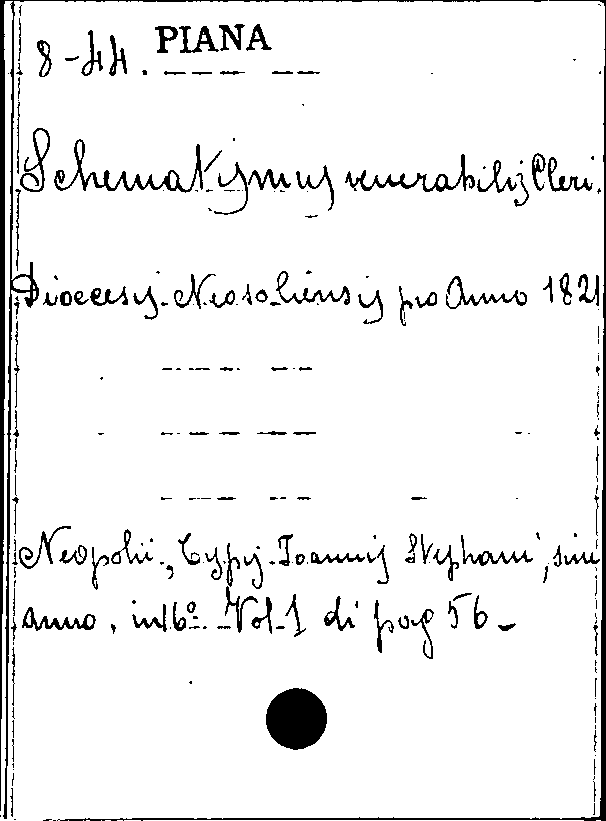 8-44. PIANA
Schematismus venerabilis Cleri
Dioecesis Neosoliensis pro Anno 1821
Neosolii, Typis Joannis Stephani, sine
anno, in 16º. Vol. 1 di pag 56-